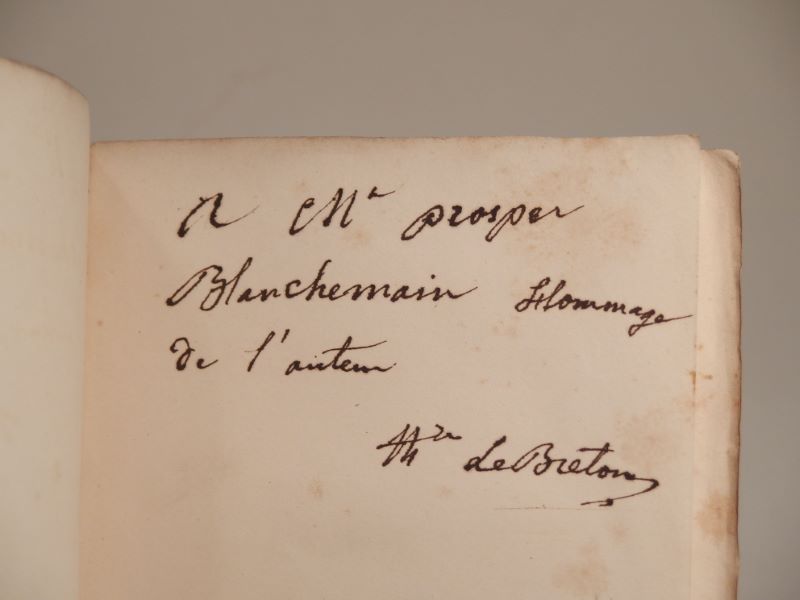 A Mr prosper
Blanchemain Hommage
de l'auteur
Thre LeBreton